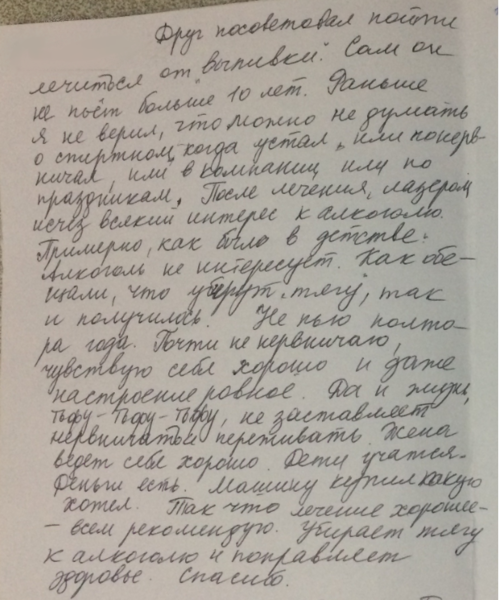 Друг посоветовал пойти
лечиться от "выпивки". Сам он
не пьёт больше 10 лет. Раньше
я не верил, что можно не думать
о спиртном, когда устал, или понерв-
ничал, или в компании или по
праздникам. После лечения, лазером
исчез всякий интерес к алкоголю.
Примерно, как было в детстве.
Алкоголь не интересует. Как обе-
щали, что уберут "тягу", так
и получилось. Не пью полто-
ра года. Почти не нервничаю,
чувствую себя хорошо и даже
настроение ровное. Да и жизнь,
тьфу-тьфу-тьфу, не заставляет
нервничать и переживать. Жена
ведёт себя хорошо. Дети учатся.
Деньги есть. Машину купил какую
хотел. Так что лечение хорошее-
- всем рекомендую. Убирает тягу
к алкоголю и поправляет
здоровье. Спасибо.